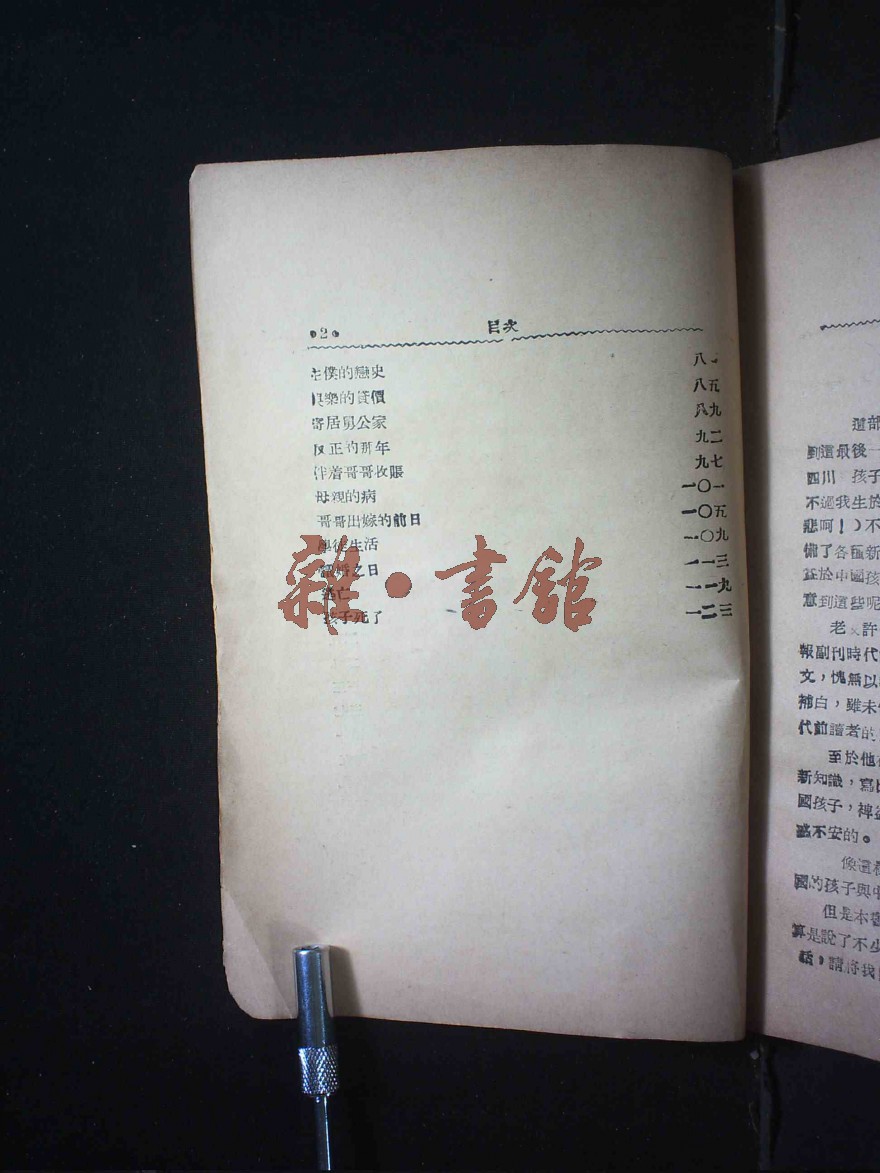 2 目次
主僕的戀史 八一
娛樂的貨價 八五
寄居舅公家 八九
反正的那年 九二
伴着哥哥收賬 九七
母親的病 一〇一
哥哥出嫁的前日 一〇五
學徒生活 一〇九
婚之日 一一三
逃亡 一一九
孩子死了 一二三
雜·書館
這部
到這最後一
四川 孩子
不過我生於
悲啊！）不
備了各種新
益於中國孩
意到這些呢
老×許
報副刊時代
文，愧無以
補白，雖未
代前讀者的
至於他
新知識，寫
國孩子，裨益
不安的。
像這種
國的孩子與
但是本書
算是說了不少
話，請將我